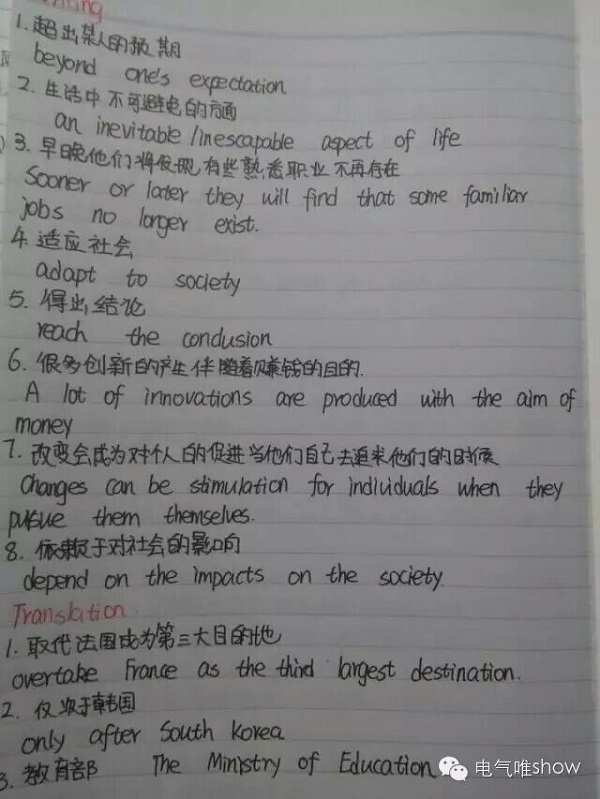 Writing
1. 超出某人的预期
beyond one's expectation
2. 生活中不可避免的方面
an inevitable/inescapable aspect of life
3. 早晚他们将发现,有些熟悉职业不再存在
Sooner or later they will find that some familiar
jobs no longer exist.
4. 适应社会
adapt to society
5. 得出结论
reach the conclusion
6. 很多创新的产生伴随着赚钱的目的.
A lot of innovations are produced with the aim of
money
7. 改变会成为对个人的促进当他们自己去追求他们的时候
Changes can be stimulation for individuals when they
pursue them themselves.
8. 依赖于对社会的影响
depend on the impacts on the society.
Translation
1. 取代法国成为第三大目的地
overtake France as the third largest destination.
2. 仅次于韩国
only after South Korea
3. 教育部 The Ministry of Education
电气唯show